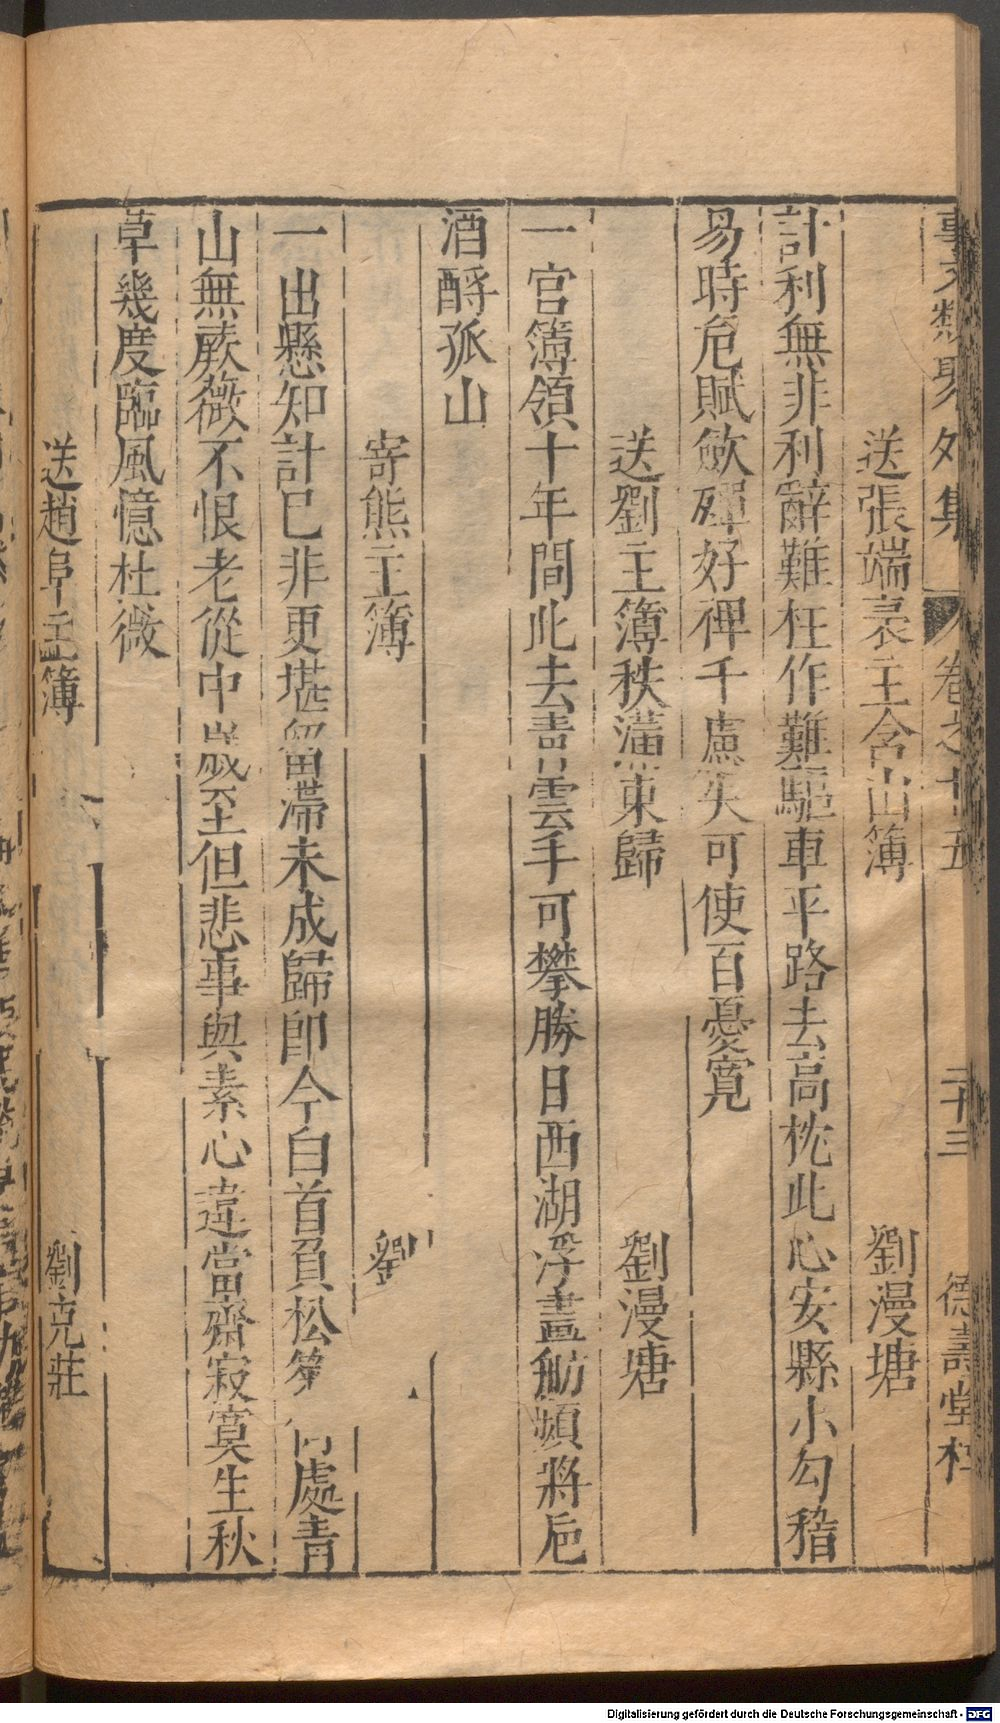 事文類聚外集 卷之十五 二十三 德壽堂梓
送張端袁主含山簿 劉漫塘
計利無非利辭難枉作難驅車平路去高枕此心安縣小勾稽
易時危賦斂殫好裨千慮失可使百憂寬
送劉主簿秩滿東歸 劉漫塘
一官簿領十年間此去青雲手可攀勝日西湖浮畫舫頻將巵
酒酹孤山
寄熊主簿 劉
一出懸知計已非更堪留滯未成歸即今白首負松筠何處青
山無蕨薇不恨老從中歲至但悲事與素心違當齋寂寞生秋
草幾度臨風憶杜薇
送趙阜主簿 劉克莊
Digitalisierung gefördert durch die Deutsche Forschungsgemeinschaft - DFG